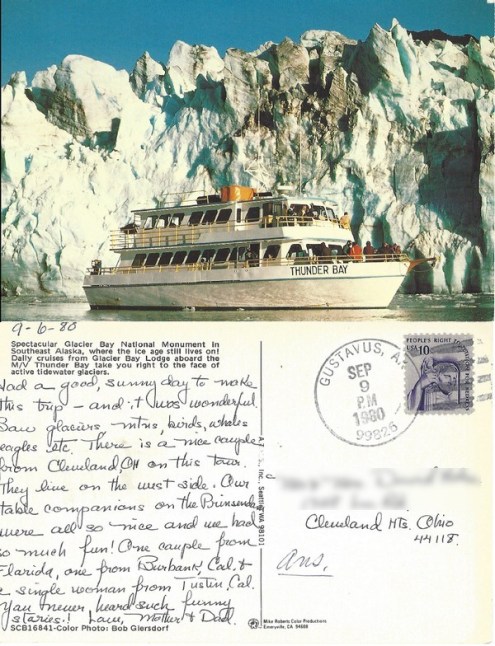 THUNDER BAY
9-6-80
Spectacular Glacier Bay National Monument in
Southeast Alaska, where the ice age still lives on!
Daily cruises from Glacier Bay Lodge aboard the
M/V Thunder Bay take you right to the face of
active tidewater glaciers.
Had a good, sunny day to make
this trip - and it was wonderful
Saw glasiers - mtns, birds, whales
eagles etc. There is a nice couple
from Cleveland, OH on this tour.
They live on the west side. Our
table companions on the Prinsendam
were all so nice and we had
so much fun! One couple from
Florida, one from Burbank, Cal. &
a single woman from Tustin, Cal.
You never heard such funny
stories! Love, Mother & Dad.
SCB16841-Color Photo: Bob Giersdorf
Seattle, WA 98101
GUSTAVUS, A
SEP
9
PM
1980
99826
PEOPLE'S RIGHT
US 10¢
Cleveland Hts. Ohio
44118.
Ans.
Mike Roberts Color Productions
Emeryville, CA 94608